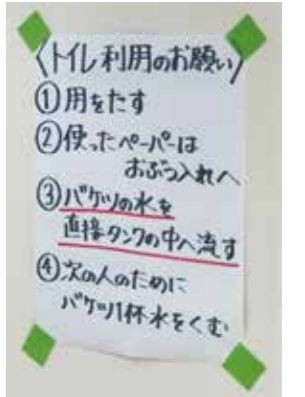 〈トイレ利用のお願い〉
①用をたす
②使ったペーパーは
おぶつ入れへ
③バケツの水を
直接タンクの中へ流す
④次の人のために
バケツ1杯水をくむ